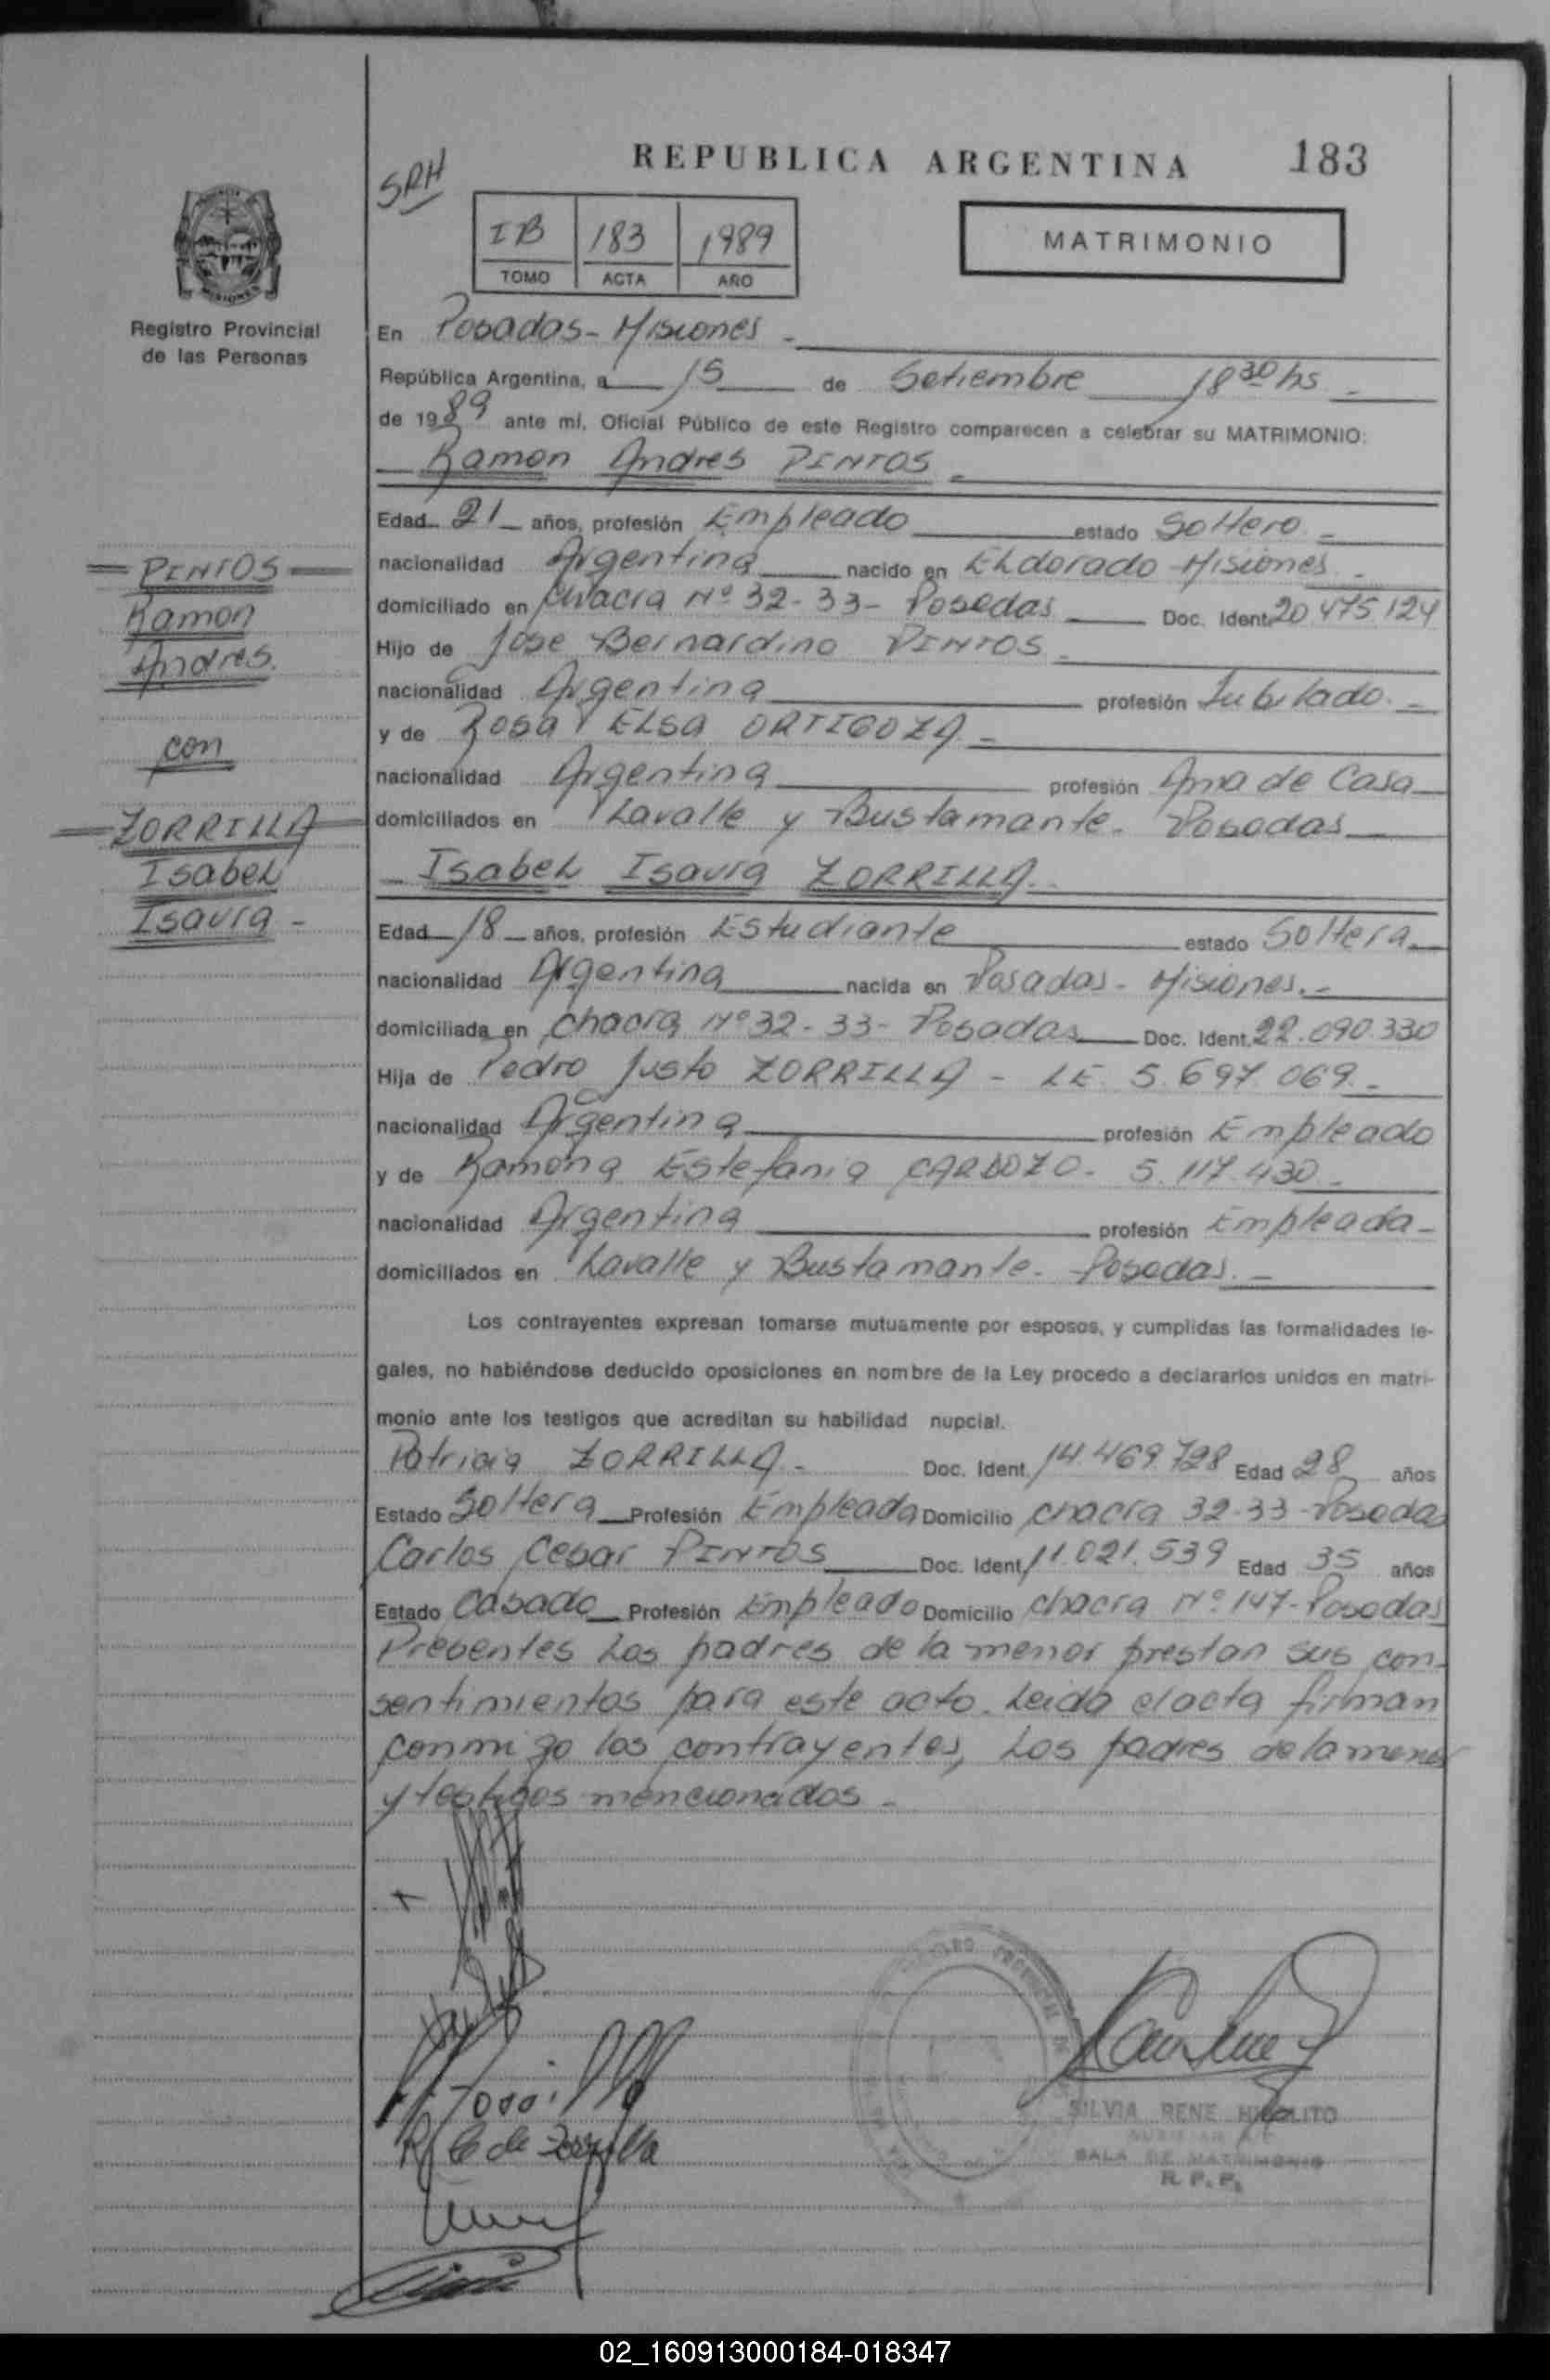 REPUBLICA ARGENTINA 183
SRH
IB 183 1989
TOMO ACTA AÑO
MATRIMONIO
MISIONES
Registro Provincial
de las Personas
En Posadas - Misiones -
República Argentina, a 15 de Setiembre 18 30 hs -
de 1989 ante mí, Oficial Público de este Registro comparecen a celebrar su MATRIMONIO:
Ramon Andres PINTOS -
Edad 21 años, profesión Empleado estado Soltero -
nacionalidad Argentina nacido en Eldorado - Misiones -
domiciliado en chacra Nº 32-33 - Posadas Doc. Ident. 20.475.124
Hijo de Jose Bernardino PINTOS -
nacionalidad Argentina profesión Jubilado. -
y de Rosa Elsa ORTIGOZA -
nacionalidad Argentina profesión Ama de Casa
domiciliados en Lavalle y Bustamante - Posadas
Isabel Isaura ZORRILLA -
Edad 18 años, profesión Estudiante estado Soltera
nacionalidad Argentina nacida en Posadas - Misiones. -
domiciliada en chacra Nº 32-33 - Posadas Doc. Ident. 22.090.330
Hija de Pedro Justo ZORRILLA - LE. 5.697.069 -
nacionalidad Argentina profesión Empleado
y de Ramona Estefania CARDOZO - 5.117.430 -
nacionalidad Argentina profesión Empleada -
domiciliados en Lavalle y Bustamante - Posadas. -
PINTOS
Ramon
Andres.
con
ZORRILLA
Isabel
Isaura -
Los contrayentes expresan tomarse mutuamente por esposos, y cumplidas las formalidades le-
gales, no habiéndose deducido oposiciones en nombre de la Ley procedo a declararlos unidos en matri-
monio ante los testigos que acreditan su habilidad nupcial.
Patricia ZORRILLA - Doc. Ident. 14.469.728 Edad 28 años
Estado Soltera Profesión Empleada Domicilio chacra 32-33 - Posadas
Carlos Cesar PINTOS Doc. Ident. 11.021.539 Edad 35 años
Estado Casado Profesión Empleado Domicilio chacra Nº 147 - Posadas
Presentes los padres de la menor prestan sus con-
sentimientos para este acto. Leida el acta firman
conmigo los contrayentes, los padres de la menor
y testigos mencionados -
R C de Zorrilla
SILVIA RENE HIPOLITO
SALA DE MATRIMONIO
R. P. P.
02_160913000184-018347